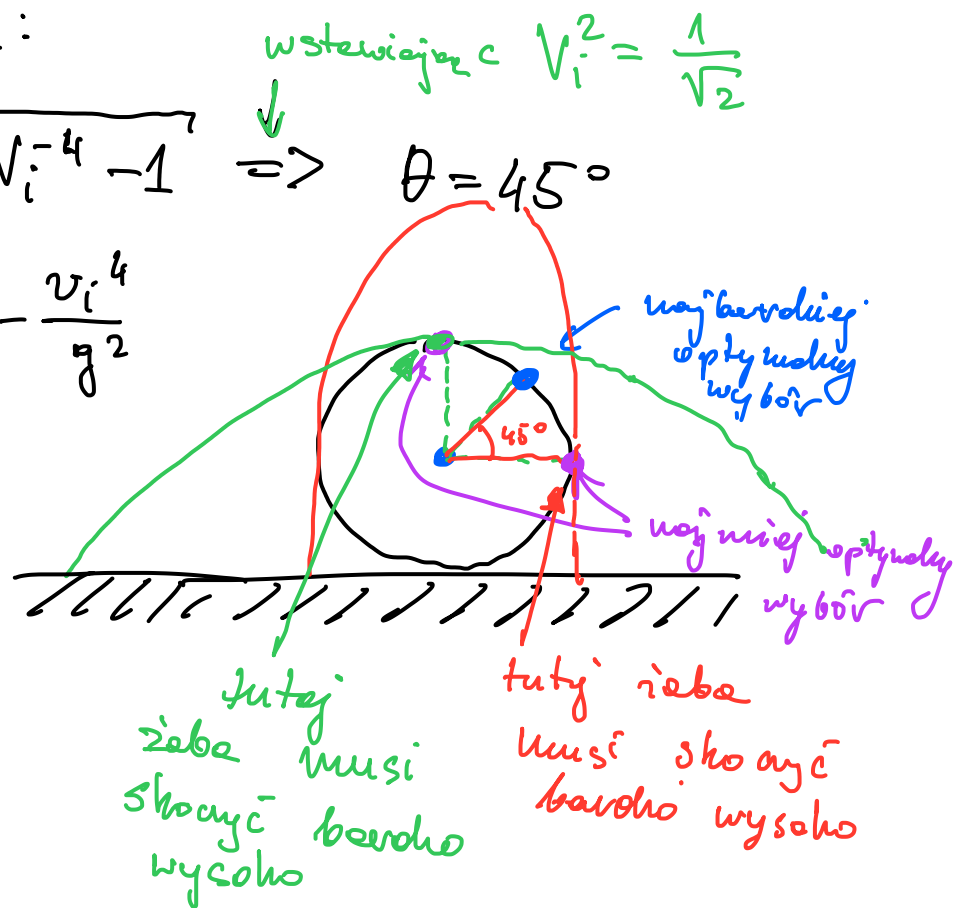 :
wstawiając V_i^2 = \frac{1}{\sqrt{2}}
V_i^{-4} - 1 => θ = 45°
- \frac{v_i^4}{g^2}
najbardziej
optymalny
wybór
45°
najmniej optymalny
wybór
tutaj
żaba musi
skoczyć bardzo
wysoko
tutaj żaba
musi skoczyć
bardzo wysoko